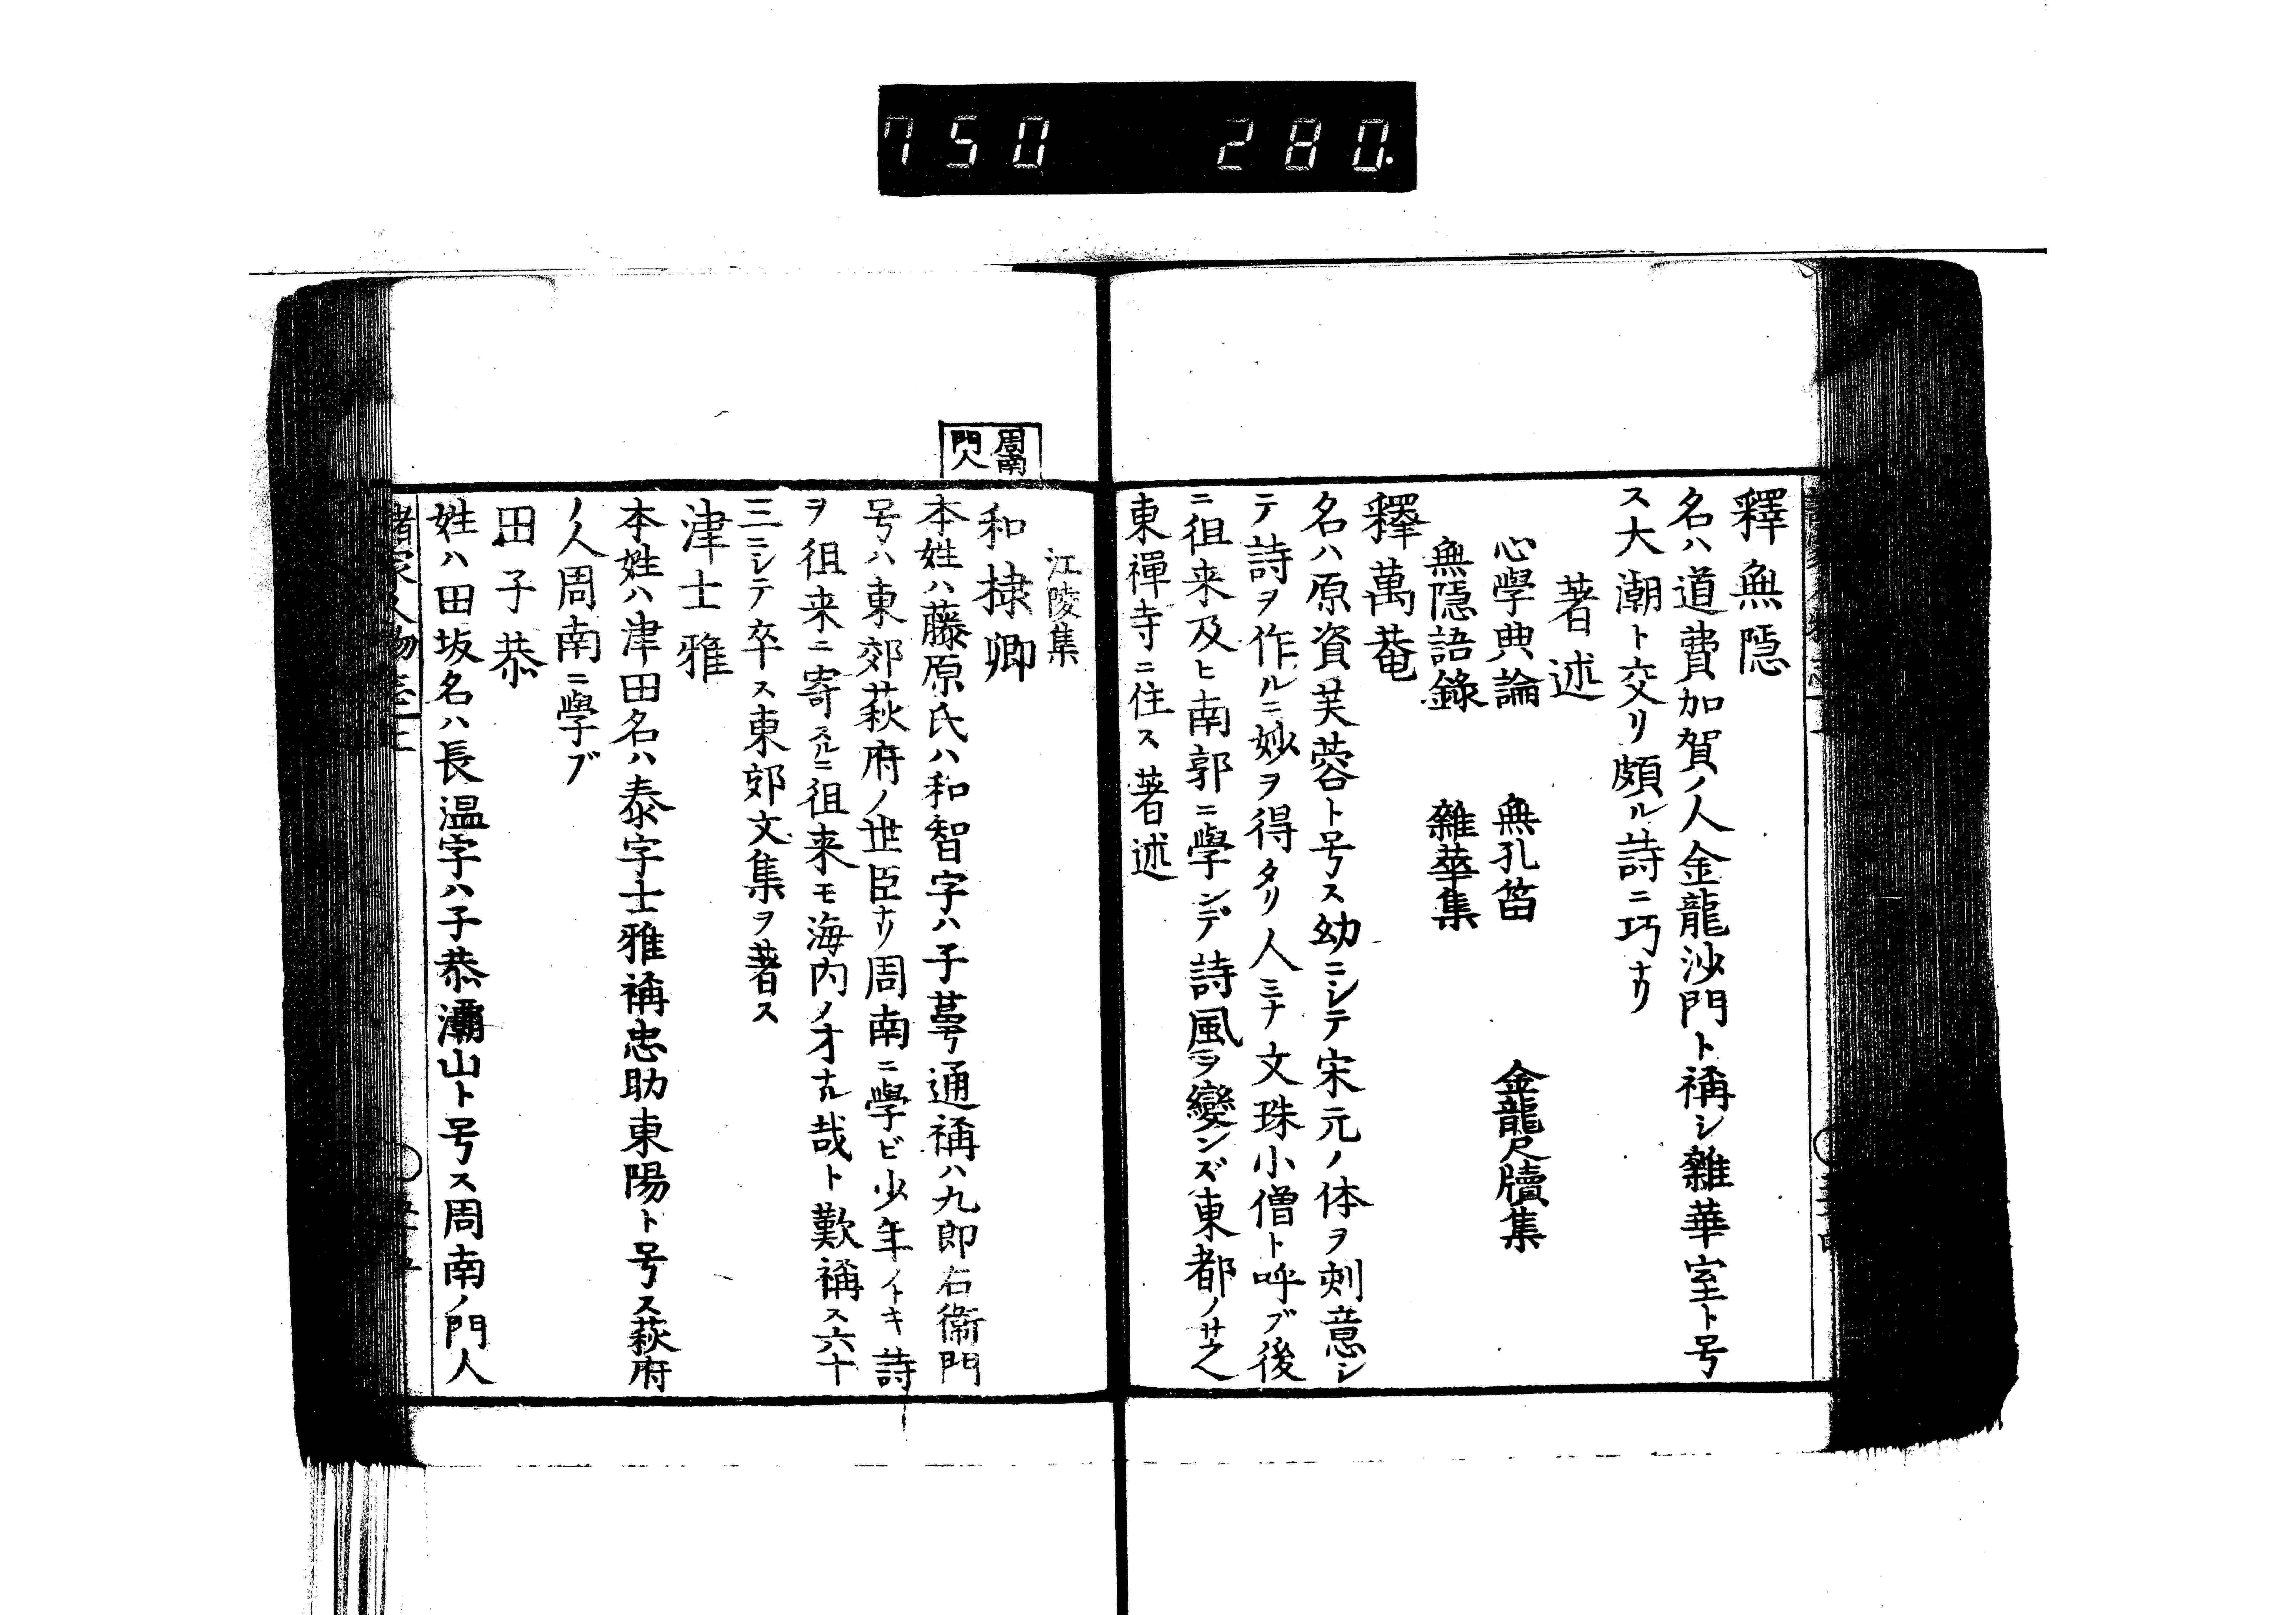 750 280.
釋無隠
名ハ道費加賀ノ人金龍沙門ト稱シ雜華室ト号
ス大潮ト交リ頗ル詩ニ巧ナリ
著述
心學典論 無孔笛 金龍尺牘集
無隠語錄 雜華集
釋萬菴
名ハ原資芙蓉ト号ス幼ニシテ宋元ノ体ヲ刻意シ
テ詩ヲ作ルニ妙ヲ得タリ人ミナ文珠小僧ト呼ブ後
ニ徂来及ヒ南郭ニ學ンデ詩風ヲ變ンズ東都ノ芝
東禪寺ニ住ス著述
江陵集
周南
門人
和棣卿
本姓ハ藤原氏ハ和智字ハ子萼通稱ハ九郎右衞門
号ハ東郊萩府ノ世臣ナリ周南ニ學ビ少年ノトキ詩
ヲ徂来ニ寄スルニ徂来モ海内ノ才ナル哉ト歎稱ス六十
三ニシテ卒ス東郊文集ヲ著ス
津士雅
本姓ハ津田名ハ泰字士雅稱忠助東陽ト号ス萩府
ノ人周南ニ學ブ
田子恭
姓ハ田坂名ハ長温字ハ子恭灞山ト号ス周南ノ門人